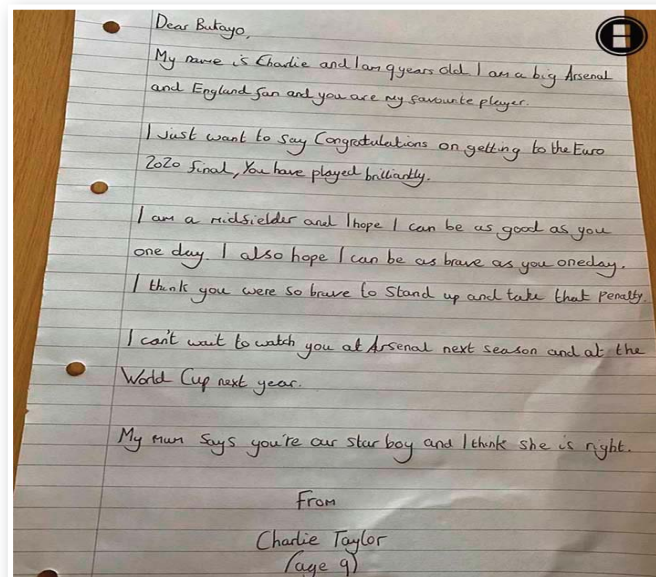 Dear Bukayo,
My name is Charlie and I am 9 years old. I am a big Arsenal
and England fan and you are my favourite player.
I just want to say Congratulations on getting to the Euro
2020 final, You have played brilliantly.
I am a midfielder and I hope I can be as good as you
one day. I also hope I can be as brave as you oneday.
I think you were so brave to stand up and take that Penalty.
I can't wait to watch you at Arsenal next season and at the
World Cup next year.
My mum says you're our star boy and I think she is right.
From
Charlie Taylor
(age 9)